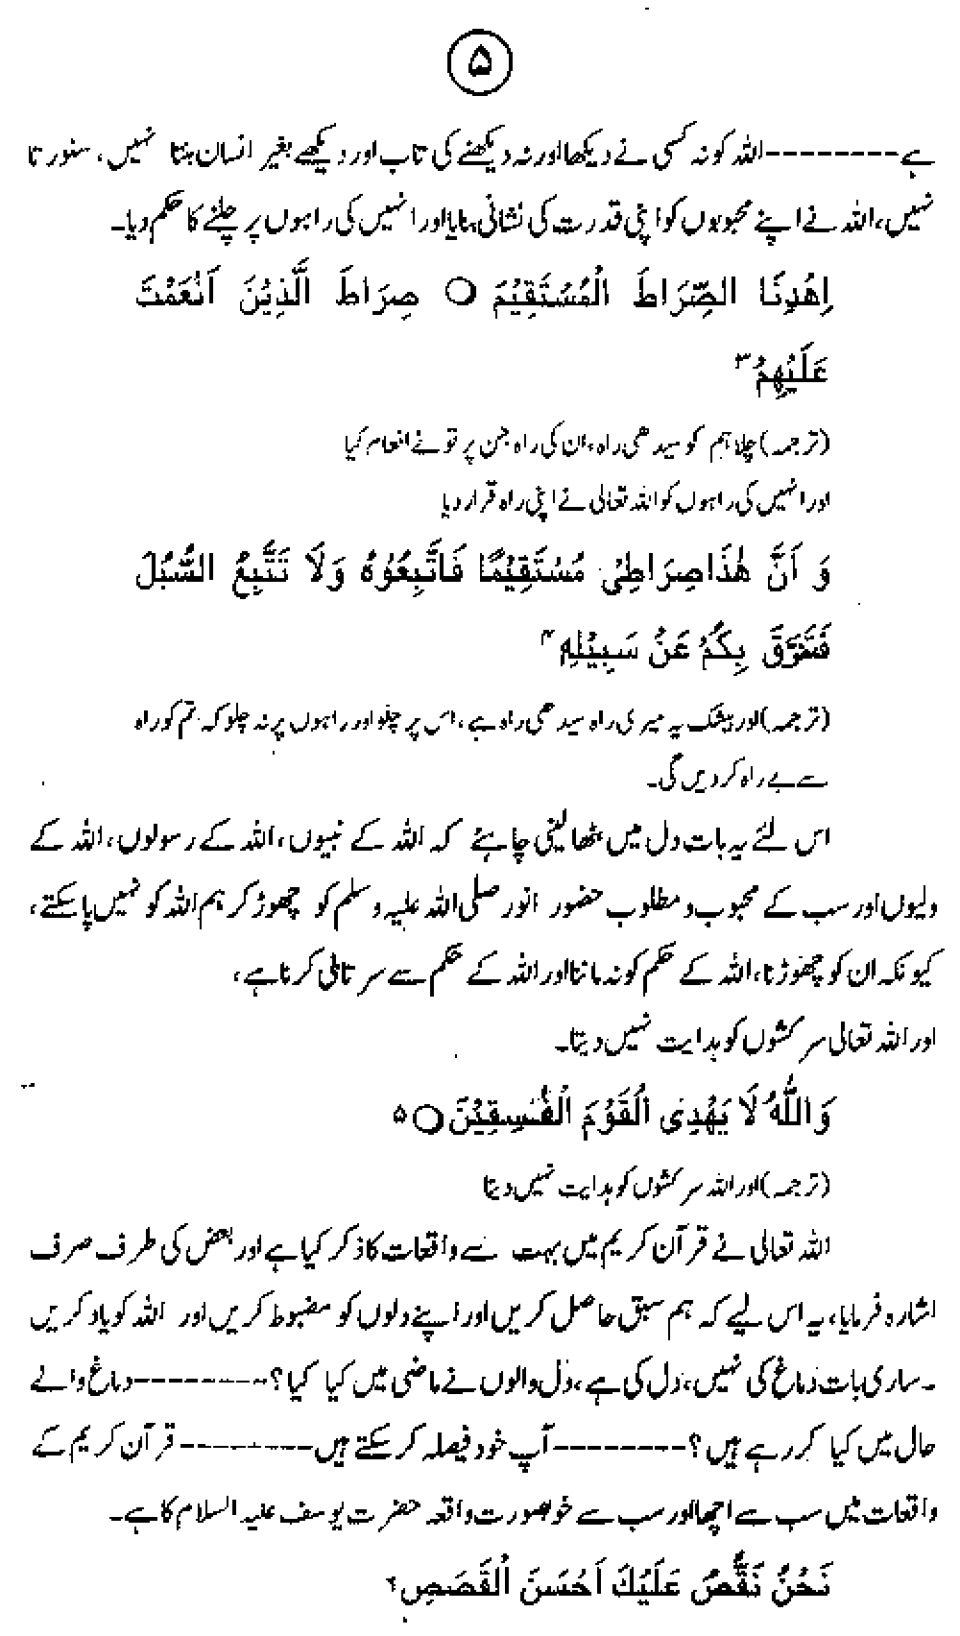 ۵
ہے--------اللہ کو نہ کسی نے دیکھا اور نہ دیکھنے کی تاب اور دیکھے بغیر انسان بنتا نہیں، سنورتا
نہیں، اللہ نے اپنے محبوبوں کو اپنی قدرت کی نشانی بنایا اور انہیں کی راہوں پر چلنے کا حکم دیا۔
اِهْدِنَا الصِّرَاطَ الْمُسْتَقِيْمَ ○ صِرَاطَ الَّذِيْنَ اَنْعَمْتَ
عَلَيْهِمْ ۳
(ترجمہ) چلا ہم کو سیدھی راہ، ان کی راہ جن پر تو نے انعام کیا
اور انہیں کی راہوں کو اللہ تعالیٰ نے اپنی راہ قرار دیا
وَ اَنَّ هٰذَا صِرَاطِيْ مُسْتَقِيْمًا فَاتَّبِعُوْهُ وَلَا تَتَّبِعُ السُّبُلَ
فَتَفَرَّقَ بِكُمْ عَنْ سَبِيْلِهٖ ۴
(ترجمہ) اور بیشک یہ میری راہ سیدھی راہ ہے، اس پر چلو اور راہوں پر نہ چلو کہ تم کو راہ
سے بے راہ کر دیں گی۔
اس لئے یہ بات دل میں بٹھا لینی چاہئے کہ اللہ کے نبیوں، اللہ کے رسولوں، اللہ کے
ولیوں اور سب کے محبوب و مطلوب حضور انور صلی اللہ علیہ وسلم کو چھوڑ کر ہم اللہ کو نہیں پا سکتے،
کیونکہ ان کو چھوڑنا، اللہ کے حکم کو نہ ماننا اور اللہ کے حکم سے سرتابی کرنا ہے،
اور اللہ تعالیٰ سرکشوں کو ہدایت نہیں دیتا۔
وَاللّٰهُ لَا يَهْدِى الْقَوْمَ الْفٰسِقِيْنَ ○ ۵
(ترجمہ) اور اللہ سرکشوں کو ہدایت نہیں دیتا
اللہ تعالیٰ نے قرآن کریم میں بہت سے واقعات کا ذکر کیا ہے اور بعض کی طرف صرف
اشارہ فرمایا، یہ اس لیے کہ ہم سبق حاصل کریں اور اپنے دلوں کو مضبوط کریں اور اللہ کو یاد کریں
۔ ساری بات دماغ کی نہیں، دل کی ہے، دل والوں نے ماضی میں کیا کیا؟--------دماغ والے
حال میں کیا کر رہے ہیں؟--------آپ خود فیصلہ کر سکتے ہیں--------قرآن کریم کے
واقعات میں سب سے اچھا اور سب سے خوبصورت واقعہ حضرت یوسف علیہ السلام کا ہے۔
نَحْنُ نَقُصُّ عَلَيْكَ اَحْسَنَ الْقَصَصِ ۶